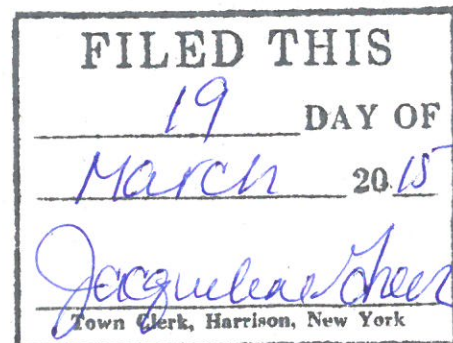 FILED THIS
19 DAY OF
March 20 15
Jacqueline Greer
Town Clerk, Harrison, New York